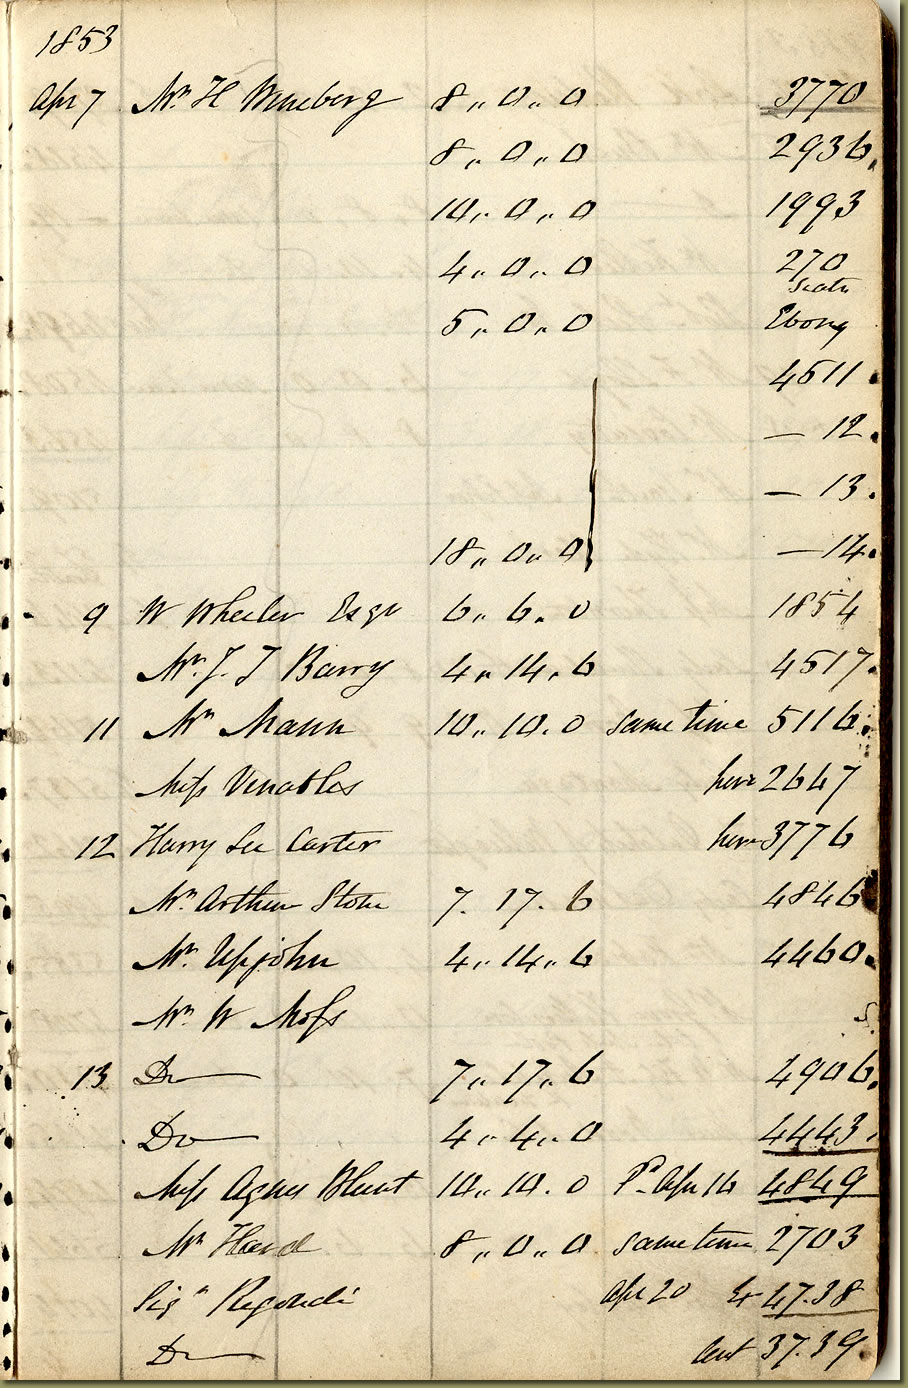 1853
Apr 7 Mr. H Minebarg 8 ,, 0 ,, 0 3770
8 ,, 0 ,, 0 2936,
10 ,, 0 ,, 0 1993
4 ,, 0 ,, 0 270
5 ,, 0 ,, 0 Ebony
4511.
— 12.
— 13.
18 ,, 0 ,, 0 — 14.
9 W Wheeler Esqr 6 ,, 6 . 0 1854
Mr. J. J Barry 4 ,, 14 ,, 6 4517.
11 Mr Mann 10 ,, 10 . 0 same time 5116.
Miss Venables here 2647
12 Harry Lee Carter here 3776
Mr. Arthur Stone 7 . 17 . 6 4846
Mr. Upjohn 4 ,, 14 ,, 6 4460.
Mr. W Moss
13 Do 7 ,, 17 ,, 6 4906.
Do 4 ,, 4 ,, 0 4443.
Miss Agnes Blunt 10 ,, 10 . 0 Pd Apr 16 4849
Mr Hand 8 ,, 0 ,, 0 same time 2703
Sigr Regondi Apr 20 47.38
Do 37.39